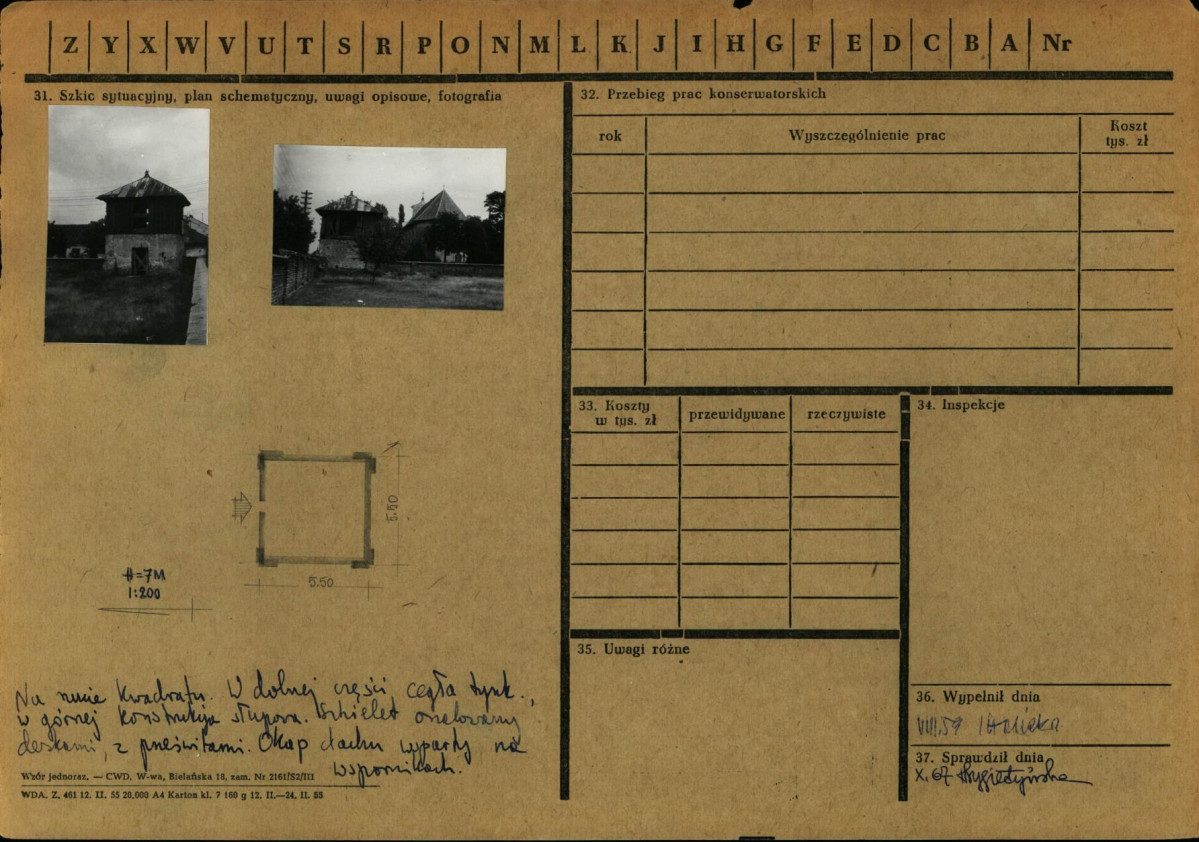 Z Y X W V U T S R P O N M L K J I H G F E D C B A Nr
31. Szkic sytuacyjny, plan schematyczny, uwagi opisowe, fotografia
5.50
5.50
H=7M
1:200
Na kwadratu. W dolnej części, cegła tynk.,
w górnej konstrukcja słupowa. Szkielet oszalowany
deskami, z prześwitami. Okap dachu wyparty na
wspornikach.
Wzór jednoraz. — CWD. W-wa, Bielańska 18, zam. Nr 2161/S2/III
WDA. Z. 461 12. II. 55 20.000 A4 Karton kl. 7 160 g 12. II.—24. II. 55
32. Przebieg prac konserwatorskich
rok
Wyszczególnienie prac
Koszt
tys. zł
33. Koszty
w tys. zł
przewidywane
rzeczywiste
34. Inspekcje
35. Uwagi różne
36. Wypełnił dnia
VIII.59
37. Sprawdził dnia
X.67